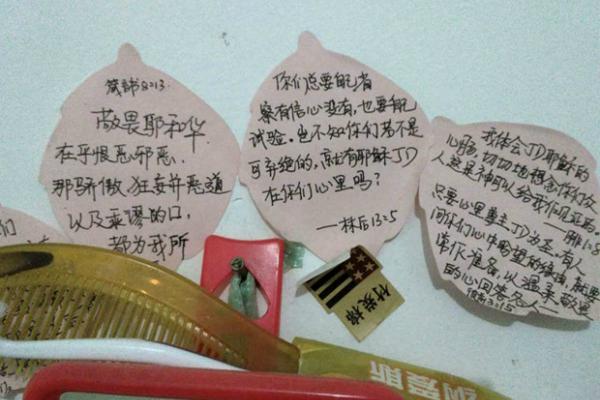 箴言书8:13.
敬畏耶和华
在乎恨恶邪恶.
那骄傲、狂妄并恶道
以及乖谬的口,
都为我所
你们总要自己省
察有信心没有,也要自己
试验。岂不知你们若不是
可弃绝的,就有耶稣JD
在你们心里吗?
—林后13:5
我体会JD耶稣的
心肠,切切地想念你们众
人这是神可以给我作见证的。
—腓1:8
只要心里尊主JD为圣,有人
问你们心中盼望的缘由,就要
常作准备,以温柔敬畏
的心回答各人—
彼前3:15
们
竹炭棉
纳爱斯